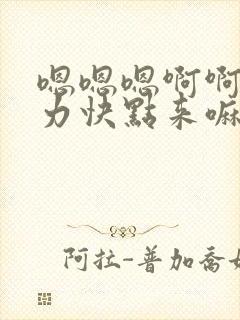 嗯嗯嗯啊啊
力快點来嘛
阿拉-普加喬